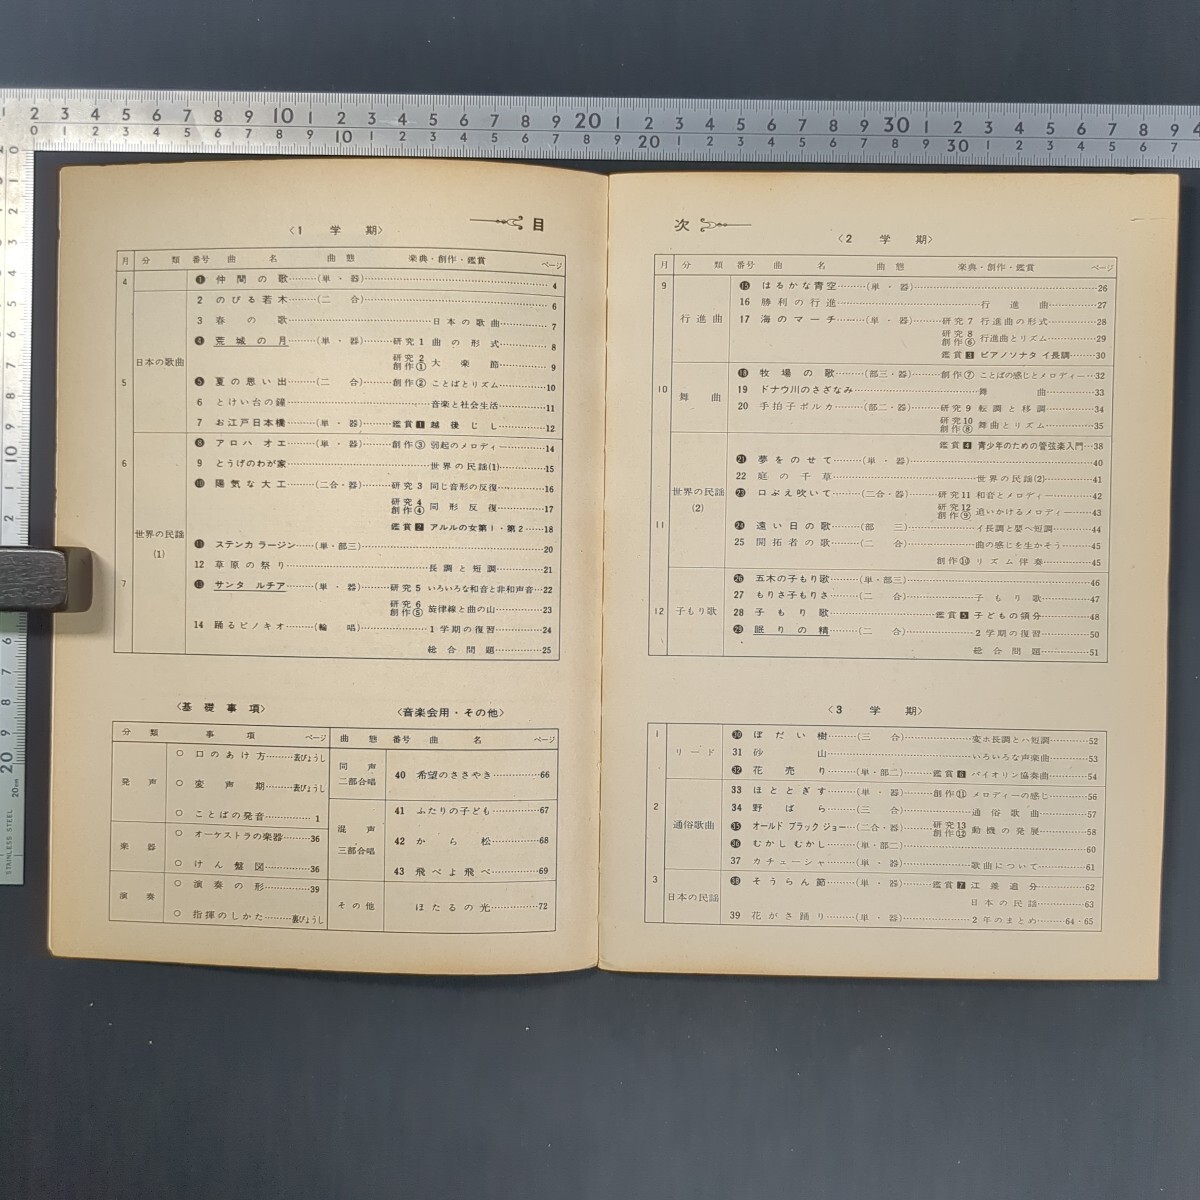 目　次
〈1　学　期〉
月　分　類　番号　曲　名　曲　態　楽典・創作・鑑賞　ページ
4　❶ 仲間の歌………(単・器)………4
日本の歌曲
2 のびる若木………(二　合)………6
3 春の歌………日本の歌曲………7
❹ 荒城の月………(単・器)………研究1 曲の形式………8
研究2 創作① 大楽節………9
5　❺ 夏の思い出………(二　合)………創作② ことばとリズム………10
6 とけい台の鐘………音楽と社会生活………11
7 お江戸日本橋………(単・器)………鑑賞1 越後じし………12
世界の民謡(1)
❽ アロハ オエ………(単・器)………創作③ 弱起のメロディー………14
6　9 とうげのわが家………世界の民謡(1)………15
❿ 陽気な大工………(二合・器)………研究3 同じ音形の反復………16
研究4 創作④ 同形反復………17
鑑賞2 アルルの女第1・第2………18
⓫ ステンカ ラージン………(単・部三)………20
12 草原の祭り………長調と短調………21
7　⓭ サンタ ルチア………(単・器)………研究5 いろいろな和音と非和声音…22
研究6 創作⑤ 旋律線と曲の山………23
14 踊るピノキオ………(輪　唱)………1学期の復習………24
総合問題………25
〈基礎事項〉
分　類　事　項　ページ
発　声
○ 口のあけ方………裏びょうし
○ 変声期………裏びょうし
○ ことばの発音………1
楽　器
○ オーケストラの楽器………36
○ けん盤図………36
演　奏
○ 演奏の形………39
○ 指揮のしかた………裏びょうし
〈音楽会用・その他〉
曲　態　番号　曲　名　ページ
同声二部合唱
40 希望のささやき………66
混声三部合唱
41 ふたりの子ども………67
42 から松………68
43 飛べよ飛べ………69
その他　ほたるの光………72
〈2　学　期〉
月　分　類　番号　曲　名　曲　態　楽典・創作・鑑賞　ページ
9　行進曲
⓯ はるかな青空………(単・器)………26
16 勝利の行進………行進曲………27
17 海のマーチ………(単・器)………研究7 行進曲の形式………28
研究8 創作⑥ 行進曲とリズム………29
鑑賞3 ピアノソナタ イ長調………30
10　舞　曲
⓲ 牧場の歌………(部三・器)………創作⑦ ことばの感じとメロディー…32
19 ドナウ川のさざなみ………舞曲………33
20 手拍子ポルカ………(部二・器)………研究9 転調と移調………34
研究10 創作⑧ 舞曲とリズム………35
鑑賞4 青少年のための管弦楽入門…38
世界の民謡(2)
㉑ 夢をのせて………(単・器)………40
22 庭の千草………世界の民謡(2)………41
㉓ 口ぶえ吹いて………(二合・器)………研究11 和音とメロディー………42
研究12 創作⑨ 追いかけるメロディー………43
11　㉔ 遠い日の歌………(部　三)………イ長調と嬰ヘ短調………44
25 開拓者の歌………(二　合)………曲の感じを生かそう………45
創作⑩ リズム伴奏………45
12　子もり歌
㉖ 五木の子もり歌………(単・部三)………46
27 もりさ子もりさ………(二　合)………子もり歌………47
28 子もり歌………鑑賞5 子どもの領分………48
㉙ 眠りの精………(二　合)………2学期の復習………50
総合問題………51
〈3　学　期〉
1　リード
㉚ ぼだい樹………(三　合)………変ホ長調とハ短調………52
31 砂山………いろいろな声楽曲………53
㉜ 花売り………(単・部二)………鑑賞6 バイオリン協奏曲………54
2　通俗歌曲
33 ほととぎす………(単・器)………創作⑪ メロディーの感じ………56
34 野ばら………(三　合)………通俗歌曲………57
㉟ オールド ブラック ジョー…(二合・器)………研究13 創作⑫ 動機の発展………58
㊱ むかし むかし………(単・部二)………60
37 カチューシャ………(単・器)………歌曲について………61
3　日本の民謡
㊳ そうらん節………(単・器)………鑑賞7 江差追分………62
日本の民謡………63
39 花がさ踊り………(単・器)………2年のまとめ………64・65
STAINLESS STEEL